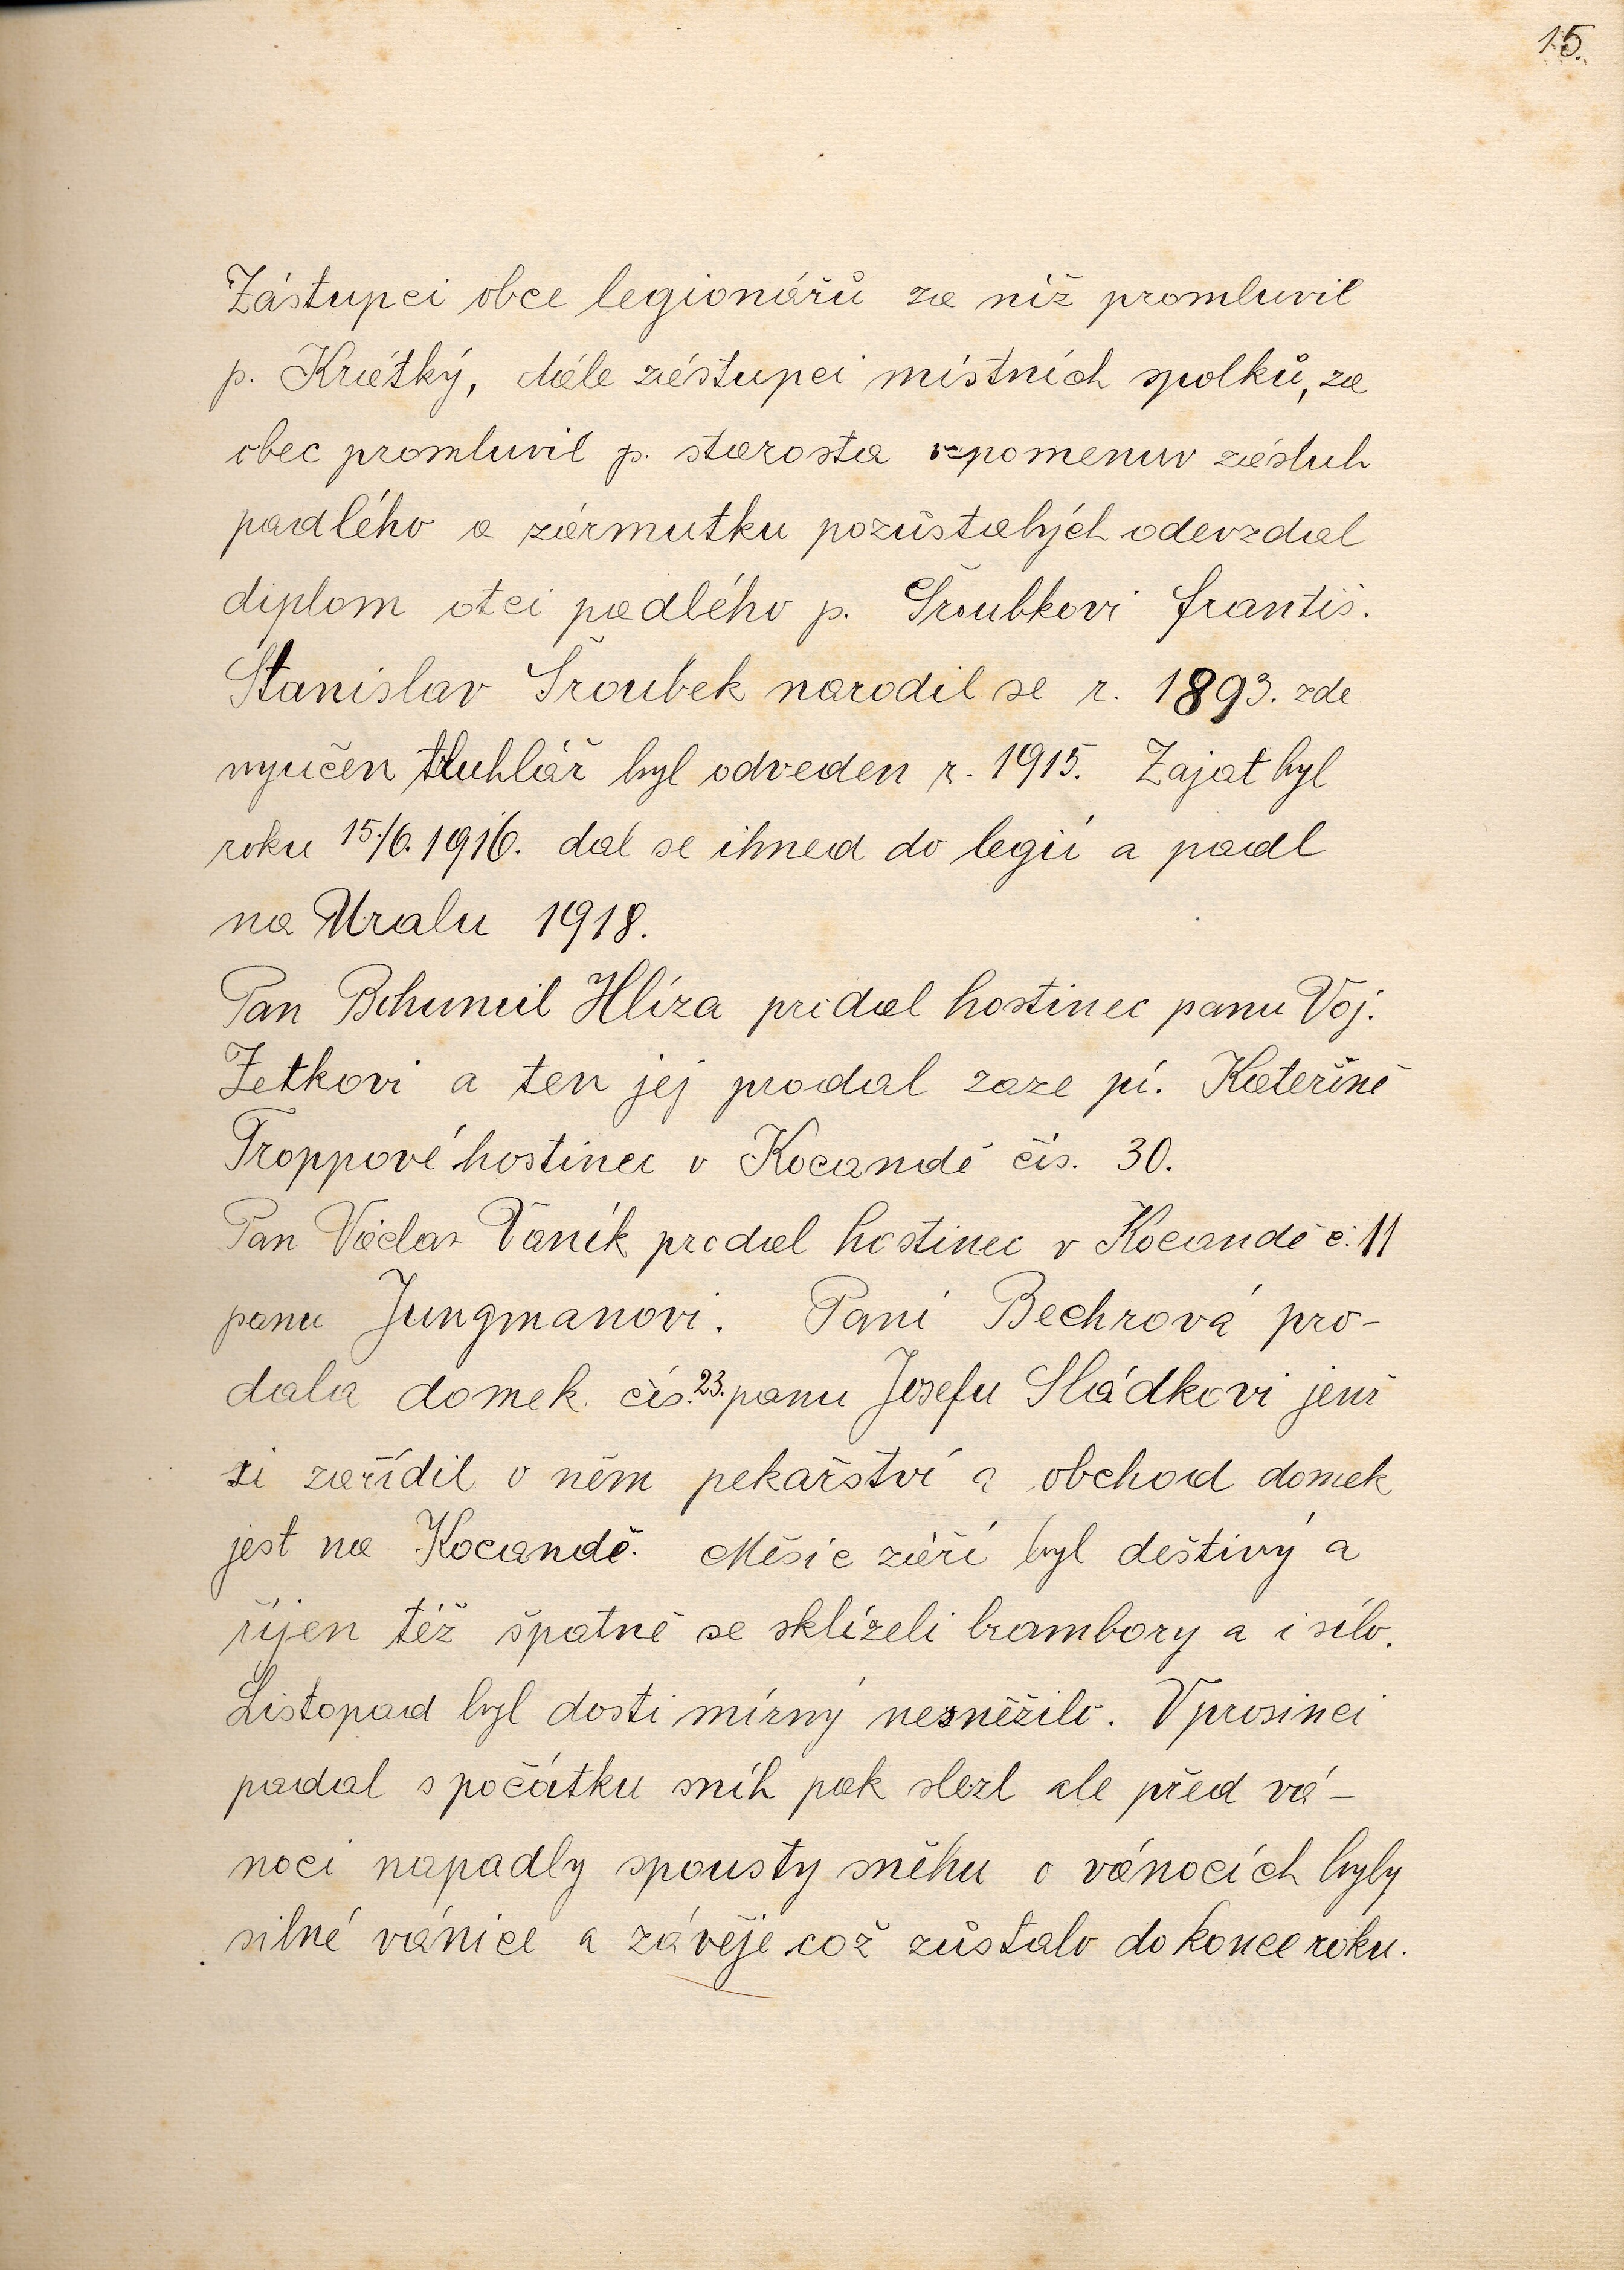 15.
Zástupci obce legionářů za níž promluvil
p. Krátký, dále zástupci místních spolků, za
obec promluvil p. starosta vzpomenuv zásluh
padlého a zármutku pozůstalých odevzdal
diplom otci padlého p. Šroubkovi Františ.
Stanislav Šroubek narodil se r. 1893. zde
vyučen truhlář byl odveden r. 1915. Zajat byl
roku 15./6. 1916. dal se ihned do legií a padl
na Uralu 1918.
Pan Bohumil Hlíza prodal hostinec panu Voj.
Zetkovi a ten jej prodal zase pí. Kateřině
Troppové hostinec v Kocandě čís. 30.
Pan Václav Vaník prodal hostinec v Kocandě č. 11
panu Jungmanovi. Paní Bechrová pro-
dala domek čís. 23. panu Josefu Sládkovi jenž
si zařídil v něm pekařství a obchod domek
jest na Kocandě. Měsíc září byl deštivý a
říjen též špatně se sklízeli brambory a i sílo.
Listopad byl dosti mírný nesněžilo. V prosinci
padal s počátku sníh pak slezl ale před vá-
noci napadly spousty sněhu o vánocích byly
silné vánice a závěje což zůstalo do konce roku.